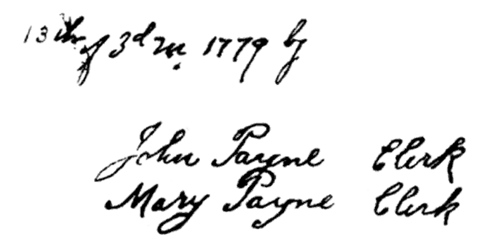 13th of 3d m. 1779 by
John Payne Clerk
Mary Payne Clerk